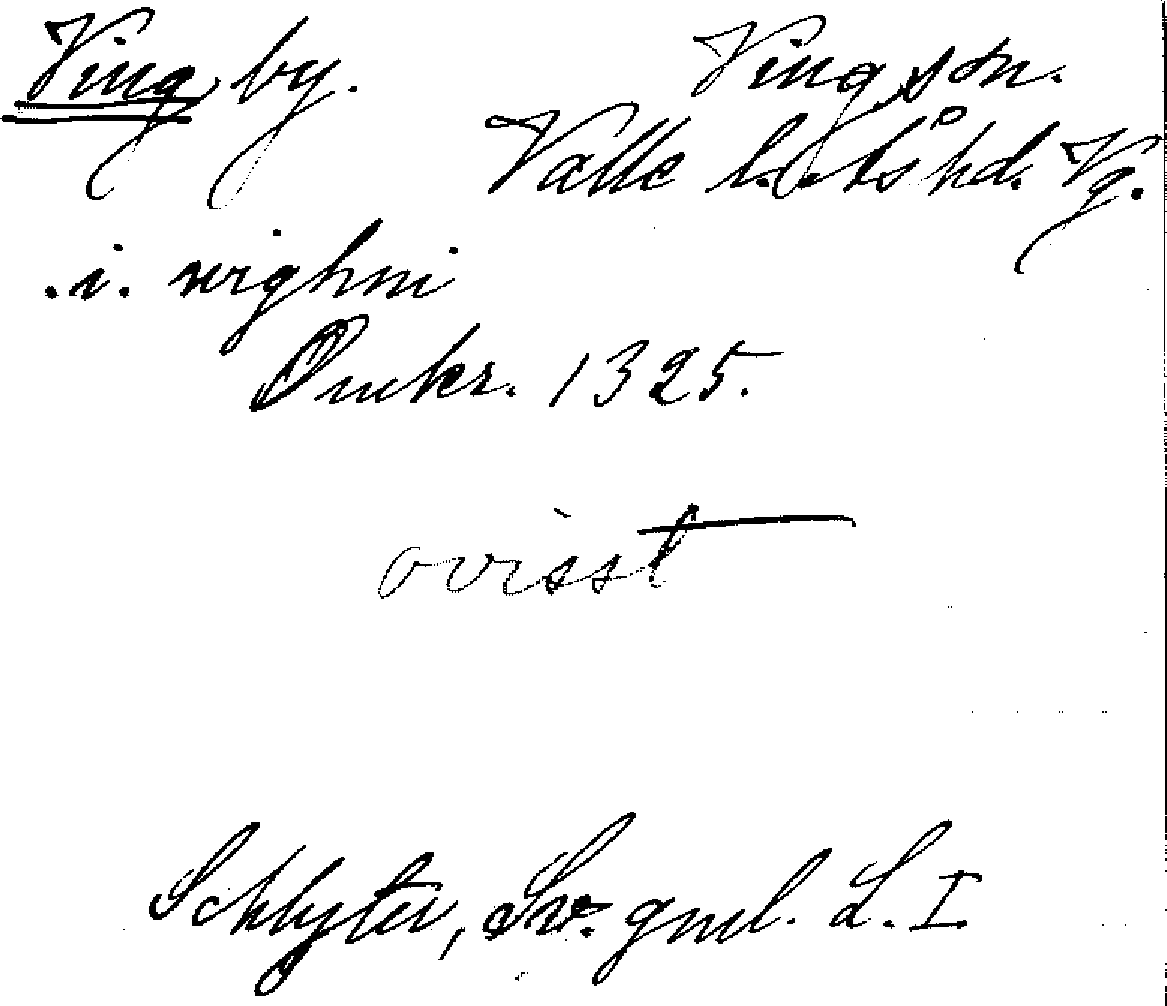 Ving by. Ving skn.
Valle l. Ås hd. Vg.
.i. wighmi
Omkr. 1325.
ovisst
Schlyter, Sv. gml. L. I.